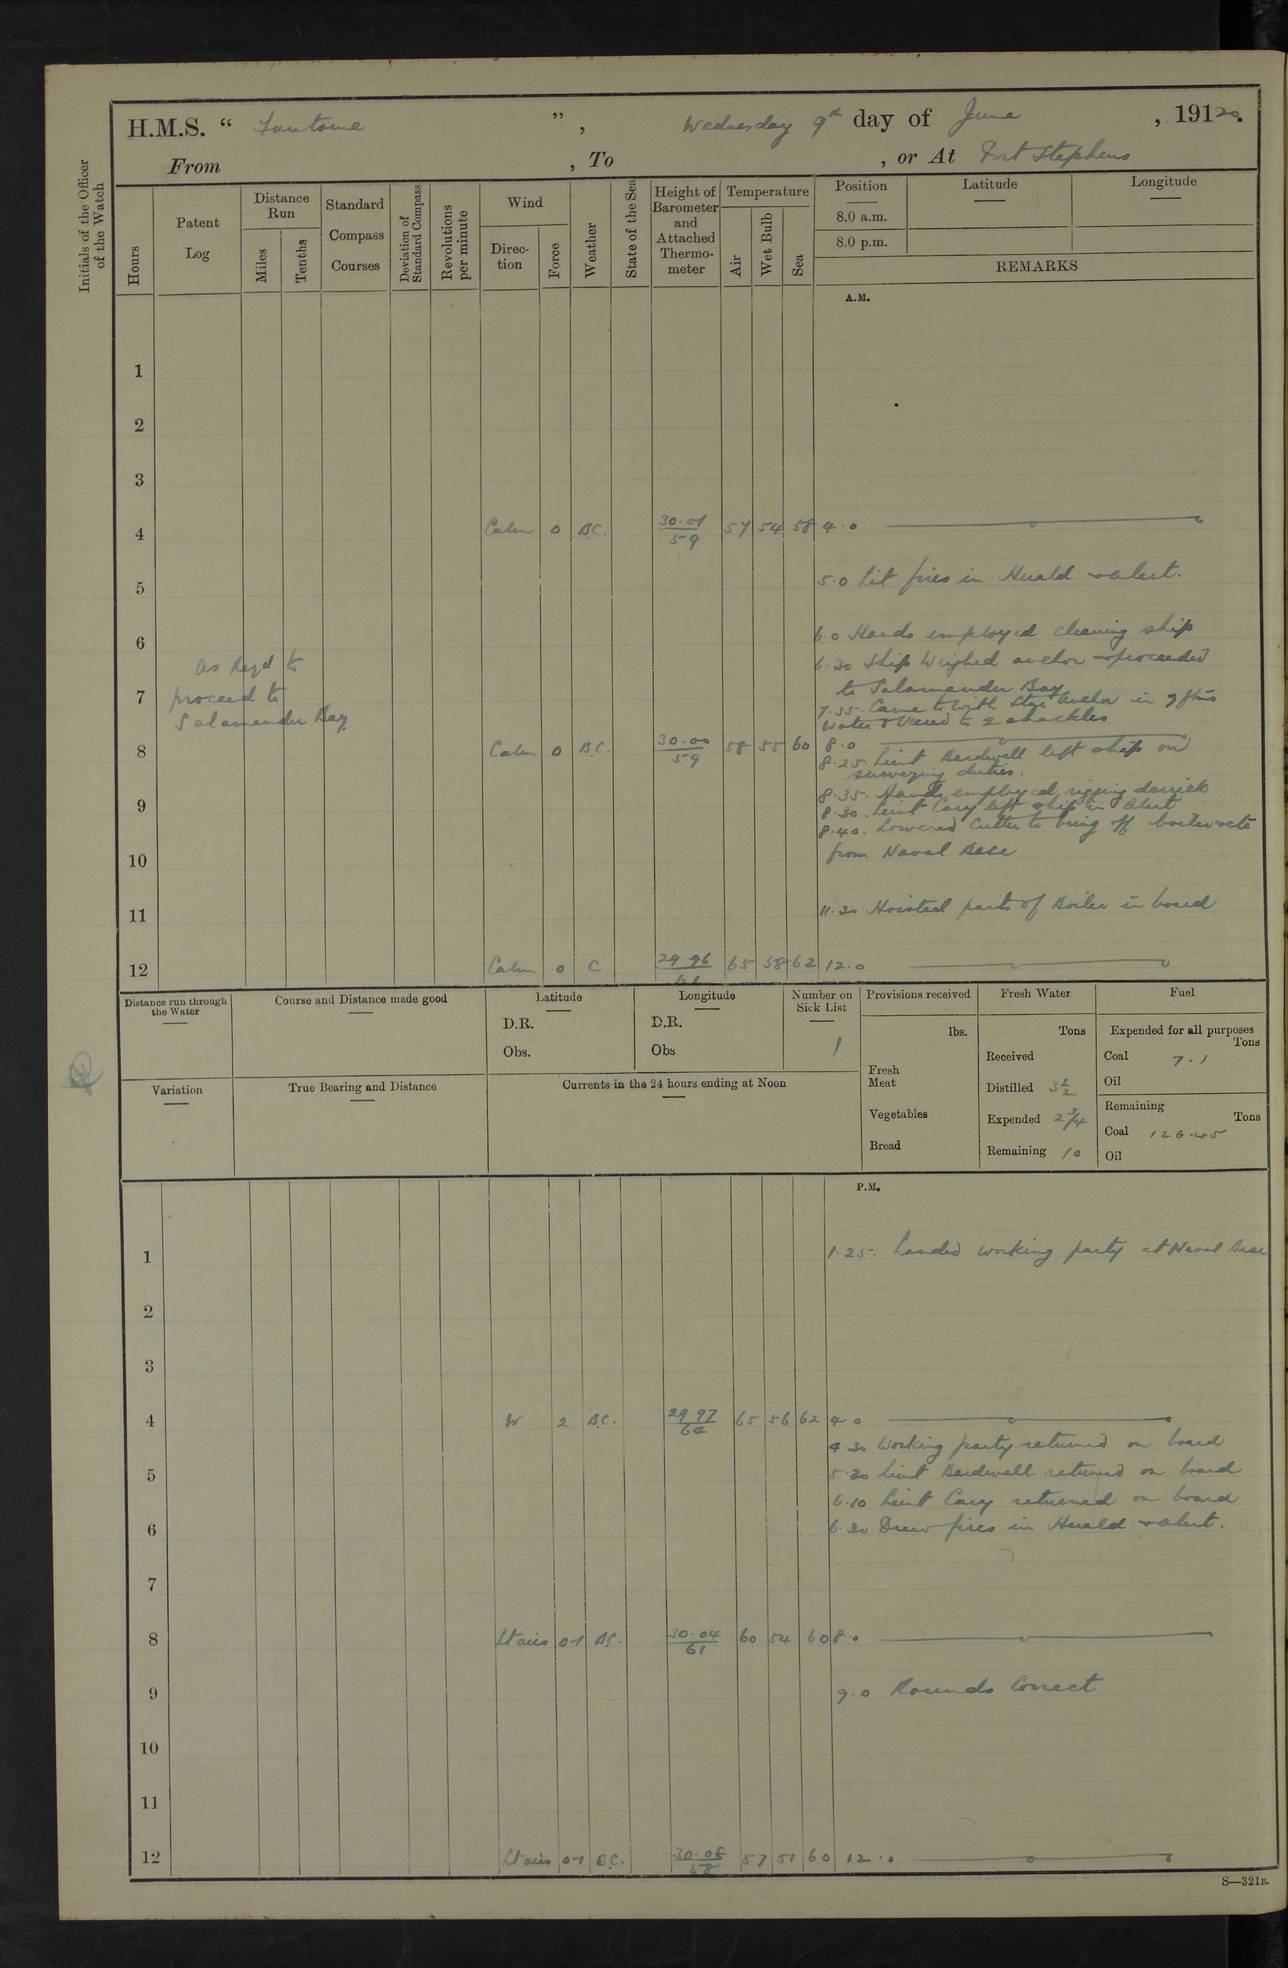 H.M.S. “ Fantome ”, Wednesday 9th day of June , 19120.
From , To , or At Port Stephens
Initials of the Officer of the Watch
Hours
Patent Log
Distance Run
Miles
Tenths
Standard Compass Courses
Deviation of Standard Compass
Revolutions per minute
Wind
Direction
Force
Weather
State of the Sea
Height of Barometer and Attached Thermometer
Temperature
Air
Wet Bulb
Sea
Position
Latitude
Longitude
8.0 a.m.
8.0 p.m.
REMARKS
A.M.
1
2
3
4 Calm 0 B.C. 30.01 59 57 54 58 4.0
5 5.0 Lit fires in Herald & Alert.
6 6.0 Hands employed cleaning ship
6.30 Ship Weighed anchor & proceeded
to Salamander Bay
As Reqd to
7 proceed to
Salamander Bay
7.35. Came to with Stbd Anchor in 7 fms
Water & Veered to 2 shackles
8 Calm 0 B.C. 30.00 59 58 55 60 8.0
8.25. Lieut Bardwell left ship on
surveying duties.
8.35. Hands employed rigging derrick
9 8.30. Lieut Cary left ship in Alert
8.40. Lowered Cutter to bring off boiler etc
10 from Naval Base
11 11.20 Hoisted parts of Boiler in board
12 Calm 0 C 29.96 61 65 58 62 12.0
Distance run through the Water
Course and Distance made good
Latitude
D.R.
Obs.
Longitude
D.R.
Obs
Number on Sick List
1
Variation
True Bearing and Distance
Currents in the 24 hours ending at Noon
Provisions received
lbs.
Fresh Meat
Vegetables
Bread
Fresh Water
Tons
Received
Distilled 3½
Expended 2¾
Remaining 10
Fuel
Expended for all purposes
Tons
Coal 7.1
Oil
Remaining
Tons
Coal 126.45
Oil
P.M.
1 1.25. Landed working party at Naval Base
2
3
4 W 2 B.C. 29.97 64 65 56 62 4.0
4.30 Working party returned on board
5 5.20 Lieut Bardwell returned on board
6.10 Lieut Cary returned on board
6 6.30 Drew fires in Herald & Alert.
7
8 Lt airs 0-1 B.C. 30.04 61 60 54 60 8.0
9 9.0 Rounds Correct
10
11
12 Lt airs 0-1 B.C. 30.05 58 57 51 60 12.0
S—321E.